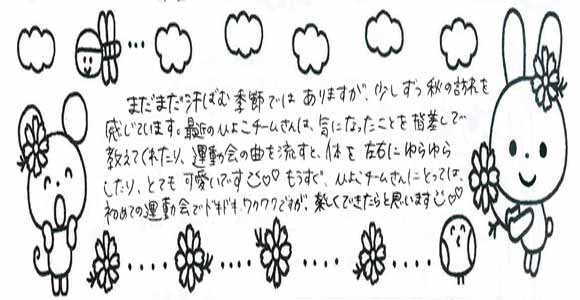 まだまだ汗ばむ季節ではありますが、少しずつ秋の訪れを
感じています。最近のひよこチームさんは、気になったことを指差しで
教えてくれたり、運動会の曲を流すと、体を左右にゆらゆら
したり、とても可愛いです♡♡ もうすぐ、ひよこチームさんにとっては、
初めての運動会でドキドキ、ワクワクですが、楽しくできたらと思います♡♡